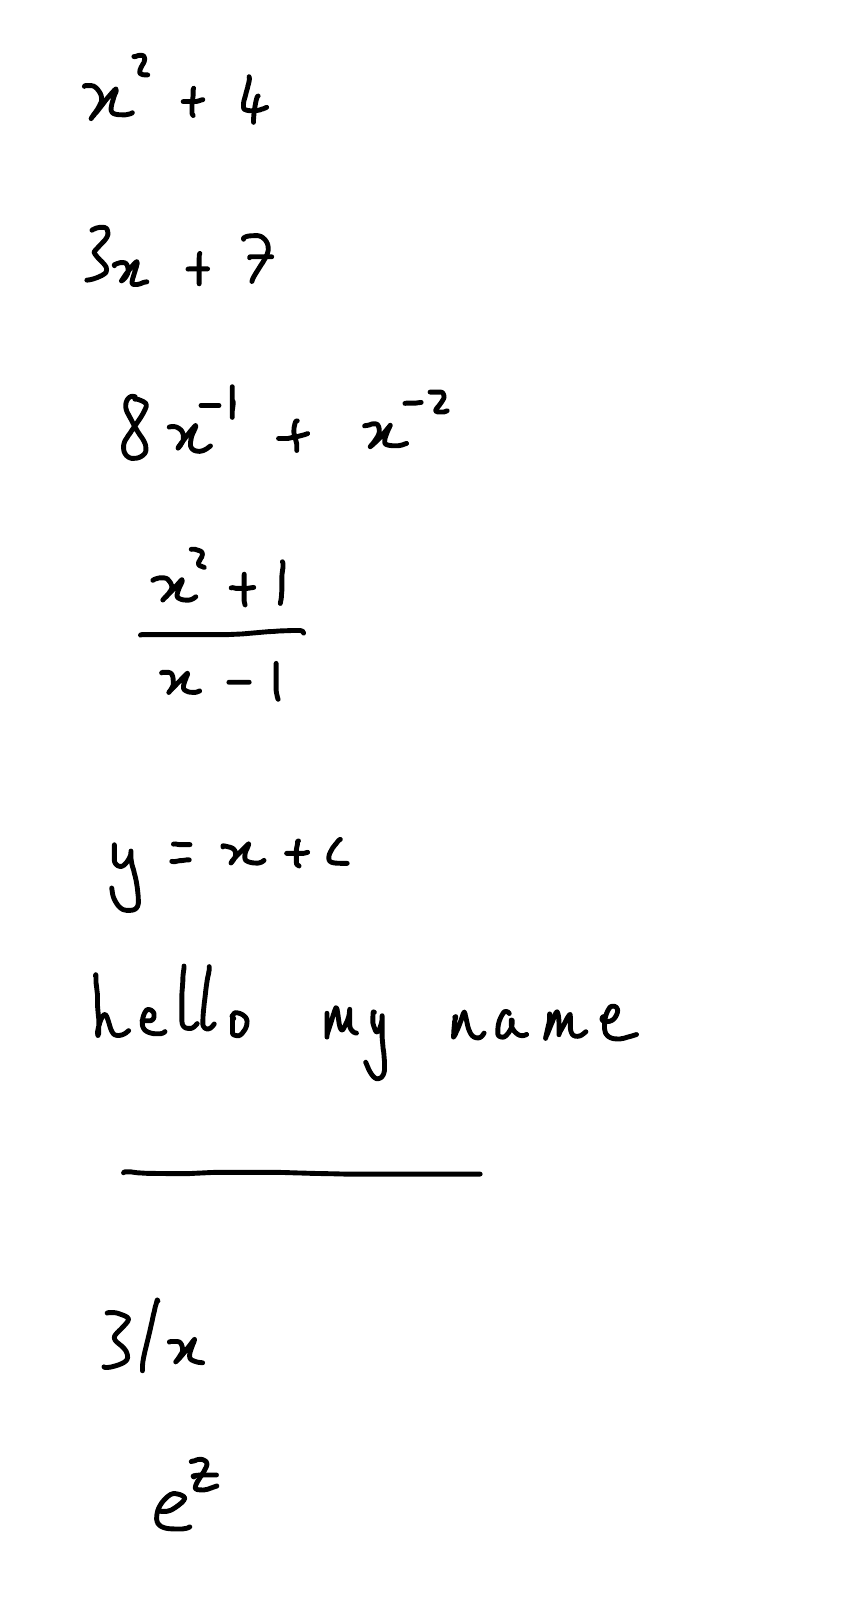 x² + 4
3x + 7
8x⁻¹ + x⁻²
x² + 1
x - 1
y = x + c
hello my name
3/x
eᶻ